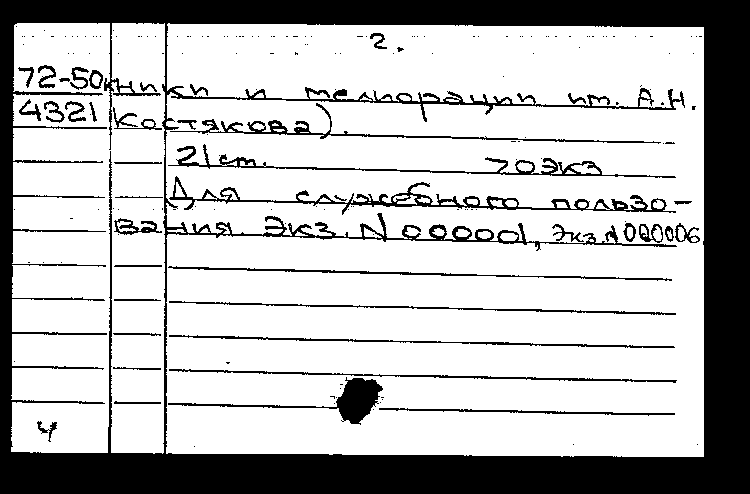 2.
72-50 хники и мелиорации им. А.Н.
4321 Костякова).
21 см. 70 экз.
Для служебного пользо-
вания. Экз. N 000001, Экз. N 000006.
4